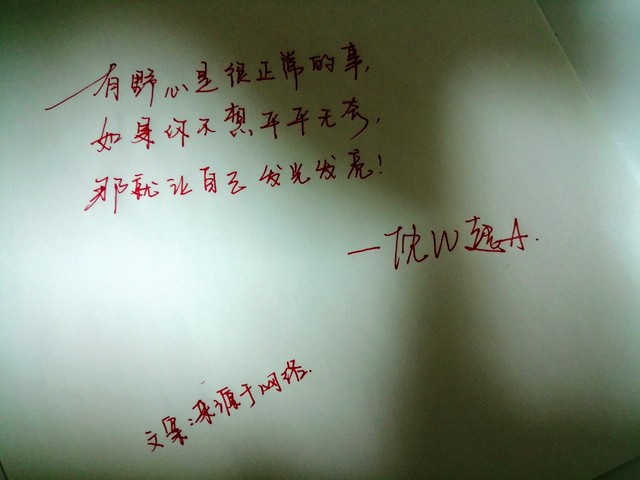 有野心是很正常的事,
如果你不想平平无奇,
那就让自己发光发亮!
文案:来源于网络.